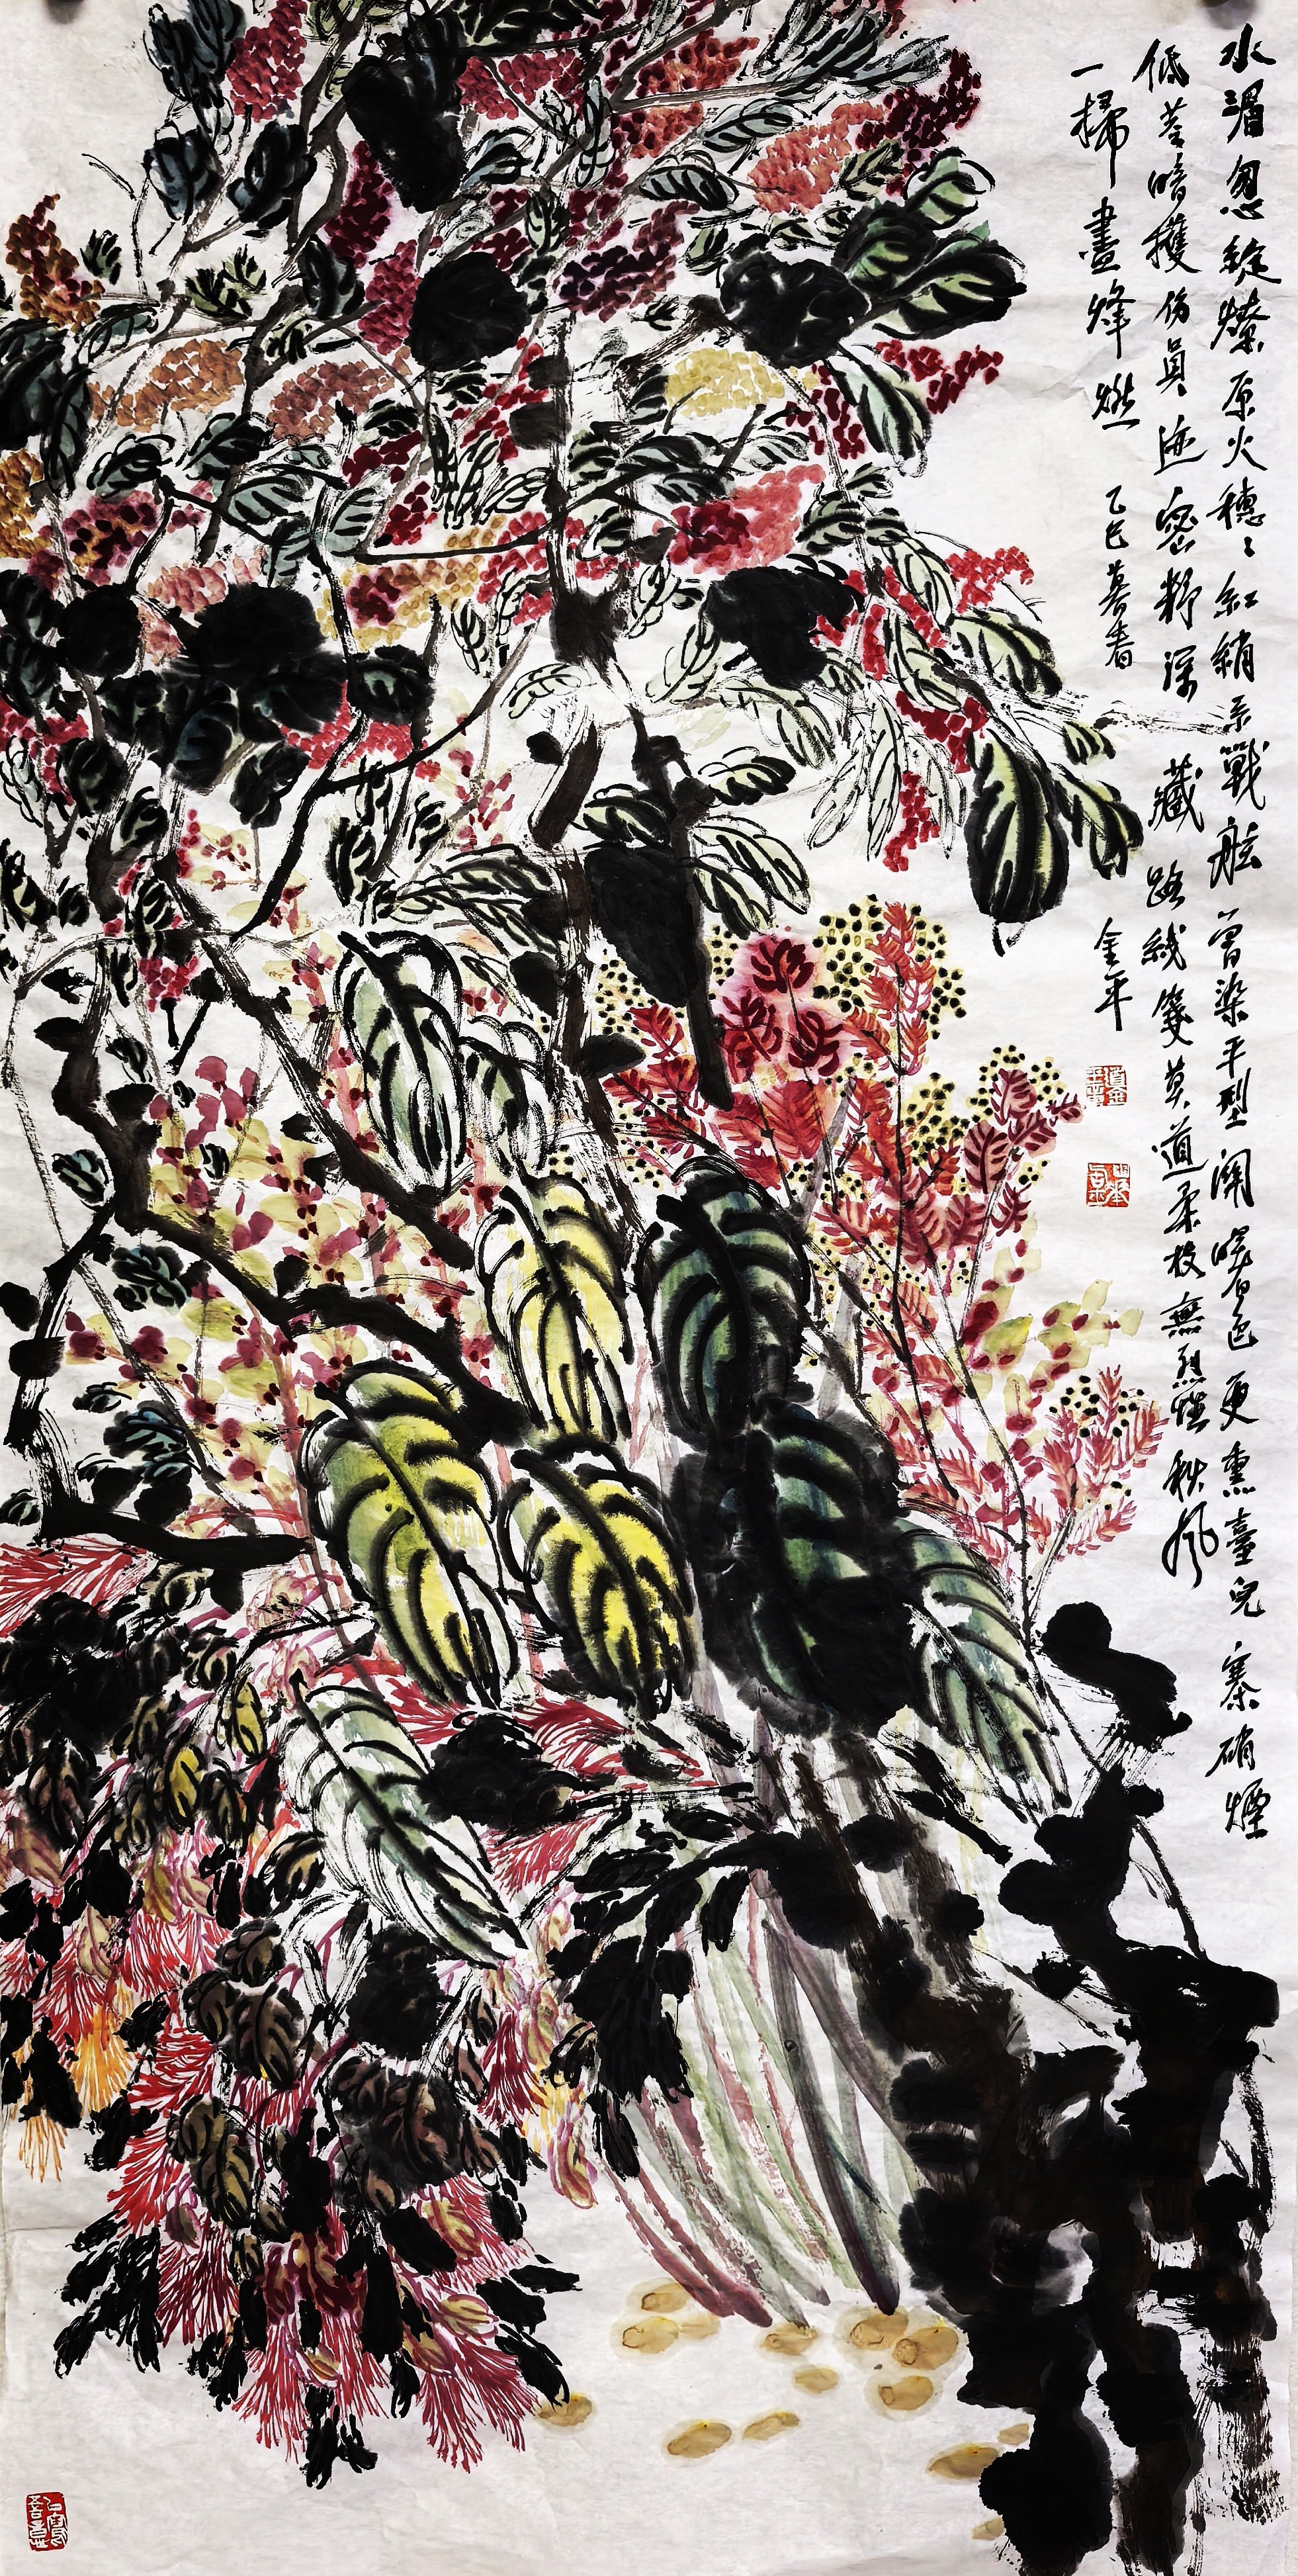 水湄忽綻燎原火穗〻紅綃系戰舷曾染平型關曙色更熏臺兒寨硝煙
低莖暗擭傷員迹密籽深藏路綫箋莫道柔枝無烈性秋風
一掃盡烽燃 乙巳暮春 金平